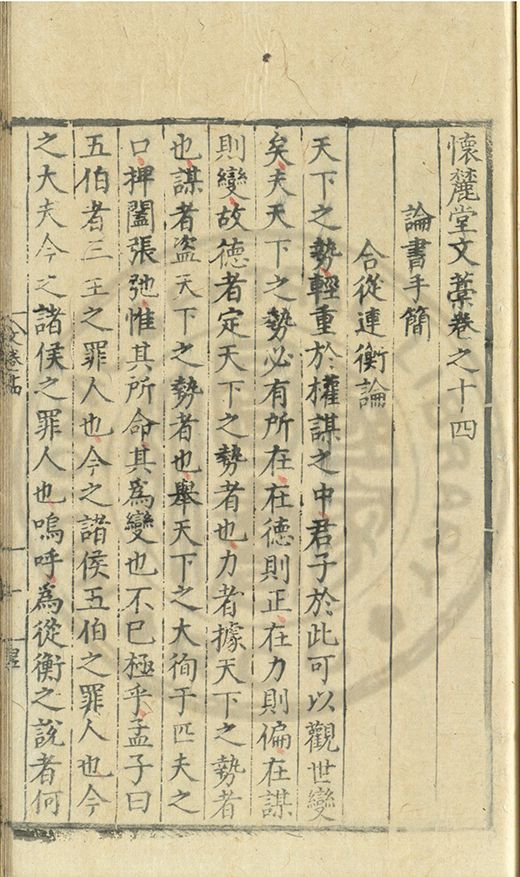 懷麓堂文藁卷之十四
論書手簡
合從連衡論
天下之勢輕重於權謀之中君子於此可以觀世變
矣夫天下之勢必有所在在德則正在力則偏在謀
則變故德者定天下之勢者也力者據天下之勢者
也謀者盜天下之勢者也舉天下之大徇于匹夫之
口捭闔張弛惟其所命其為變也不已極乎孟子曰
五伯者三王之罪人也今之諸侯五伯之罪人也今
之大夫今之諸侯之罪人也嗚呼為從衡之說者何